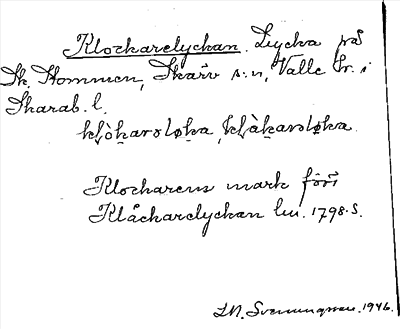 Klockarelyckan. Lycka på
St. Stommen, Skärv s:n, Valle hr. i
Skarab. l.
kļòkarslo̱ka, kļàkarslo̱ka
Klockarens mark förr
Klåckarelyckan lm. 1798. S.
Svenungsson. 1946.